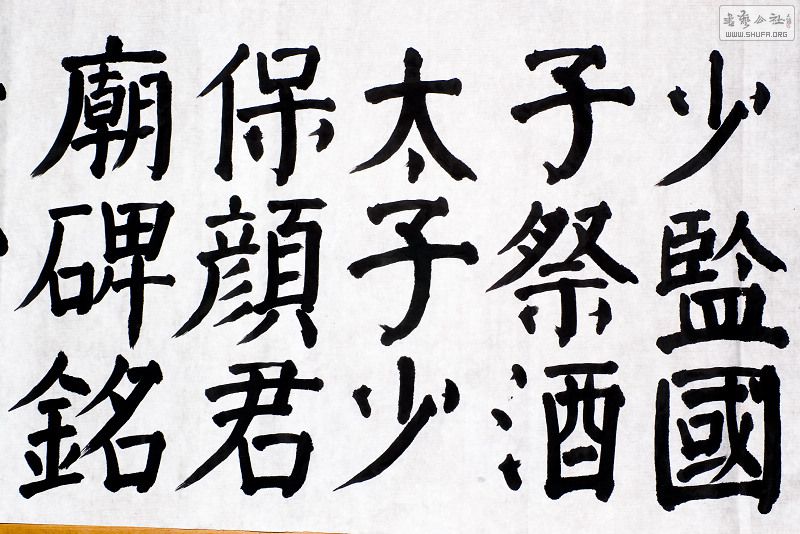 少監國
子祭酒
太子少
保顔君
廟碑銘
書藝公社
WWW.SHUFA.ORG